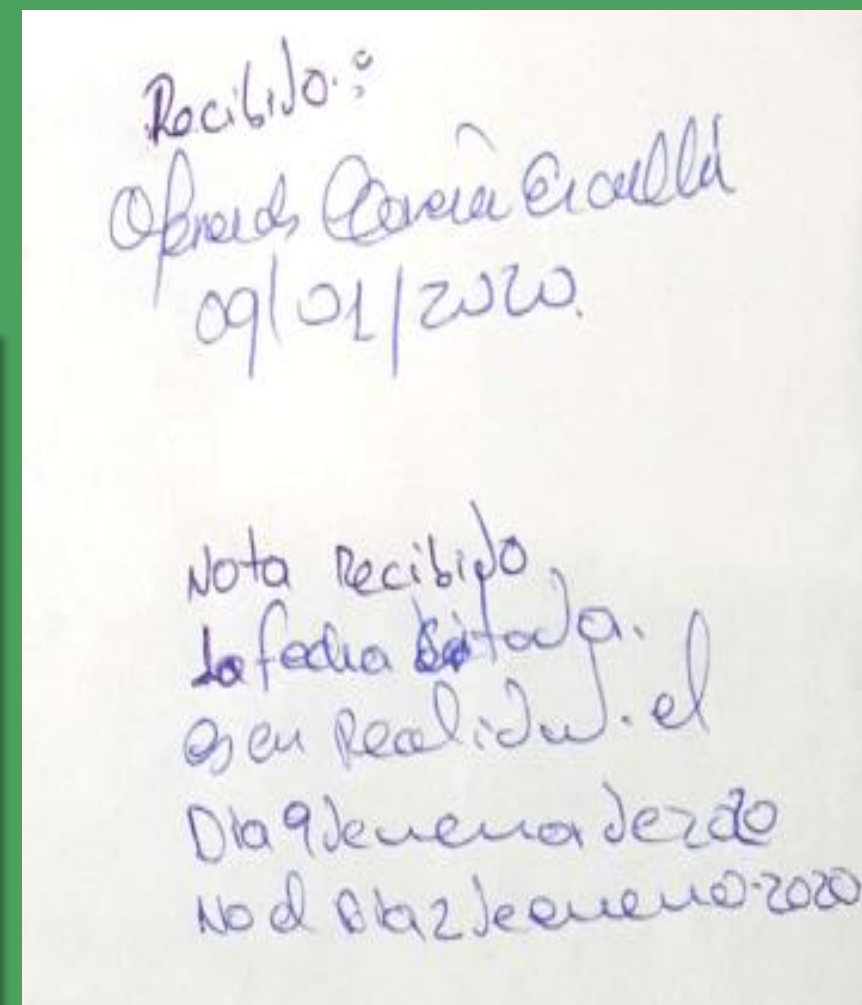 Recibido:
García
09/01/2020.
Nota Recibido.
La fecha Citada.
es en Realidad. el
Dia 9 de enero de 2020
No el Dia 2 de enero-2020